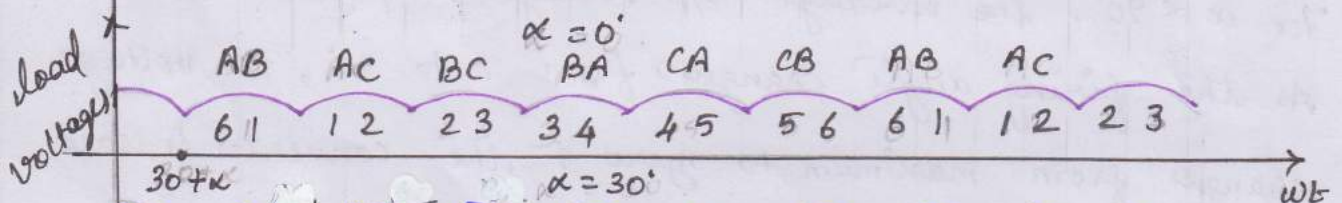 α = 0°
load voltages
AB AC BC BA CA CB AB AC
6 1 1 2 2 3 3 4 4 5 5 6 6 1 1 2 2 3
30+α α = 30° ωt